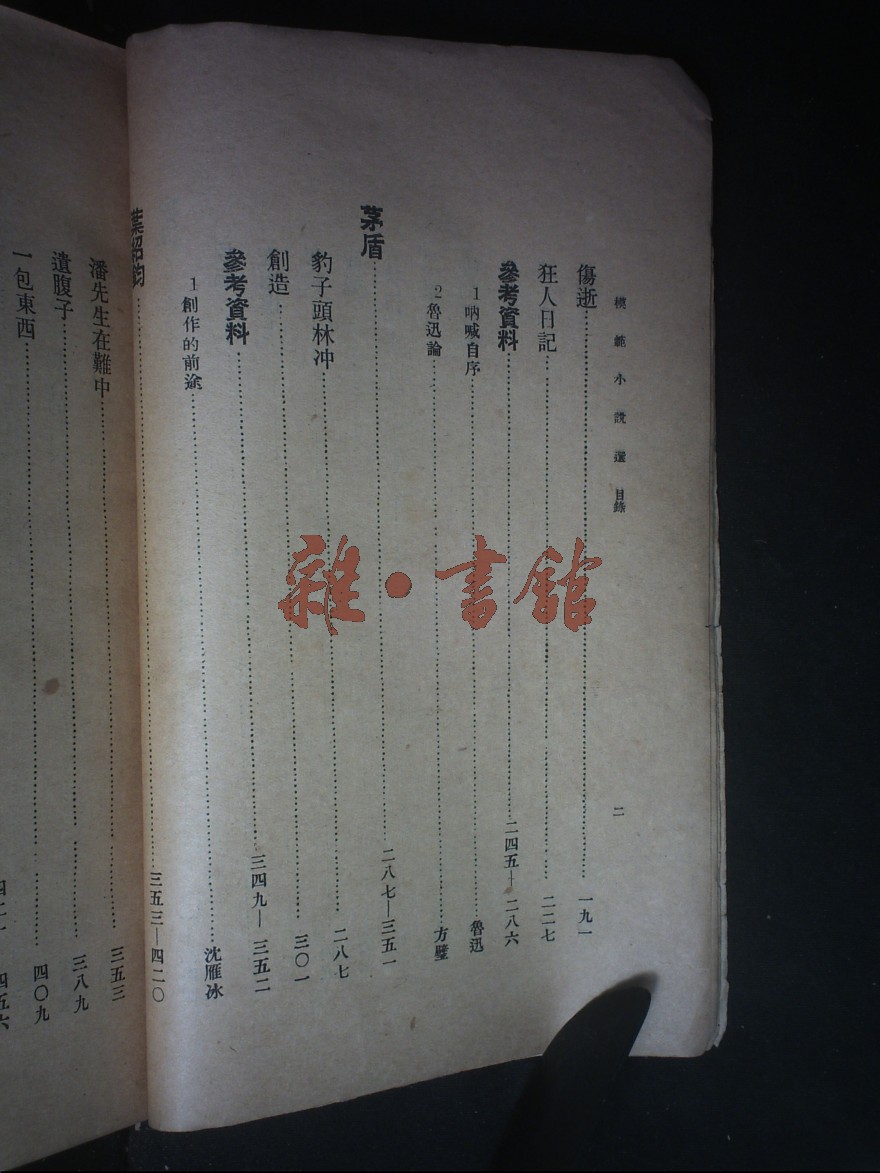 模範小說選 目錄 二
傷逝……一九一
狂人日記……二二七
參考資料……二四五—二八六
1 吶喊自序……魯迅
2 魯迅論……方璧
茅盾……二八七—三五一
豹子頭林冲……二八七
創造……三〇一
參考資料……三四九—三五二
1 創作的前途……沈雁冰
葉紹鈞……三五三—四二〇
潘先生在難中……三五三
遺腹子……三八九
一包東西……四〇九
雜·書館